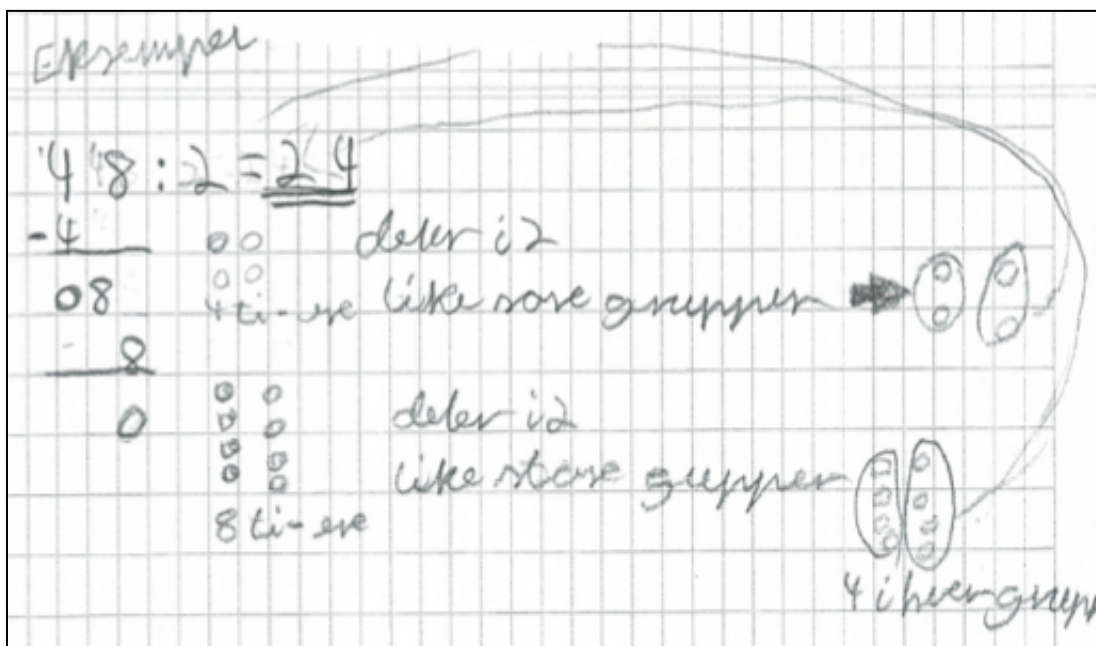 Eksempel
48:2=24
-4
deler i 2
08
4 ti-ere
like store grupper
- 8
0
deler i 2
like store grupper
8 ti-ere
4 i hver grupp